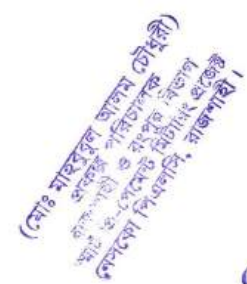 (মোঃ মাহবুবুল আলম চৌধুরী)
প্রকল্প পরিচালক
রাজশাহী ও রংপুর বিভাগ
স্মার্ট প্রি-পেমেন্ট মিটারিং প্রজেক্ট
নেসকো পিএলসি, রাজশাহী।